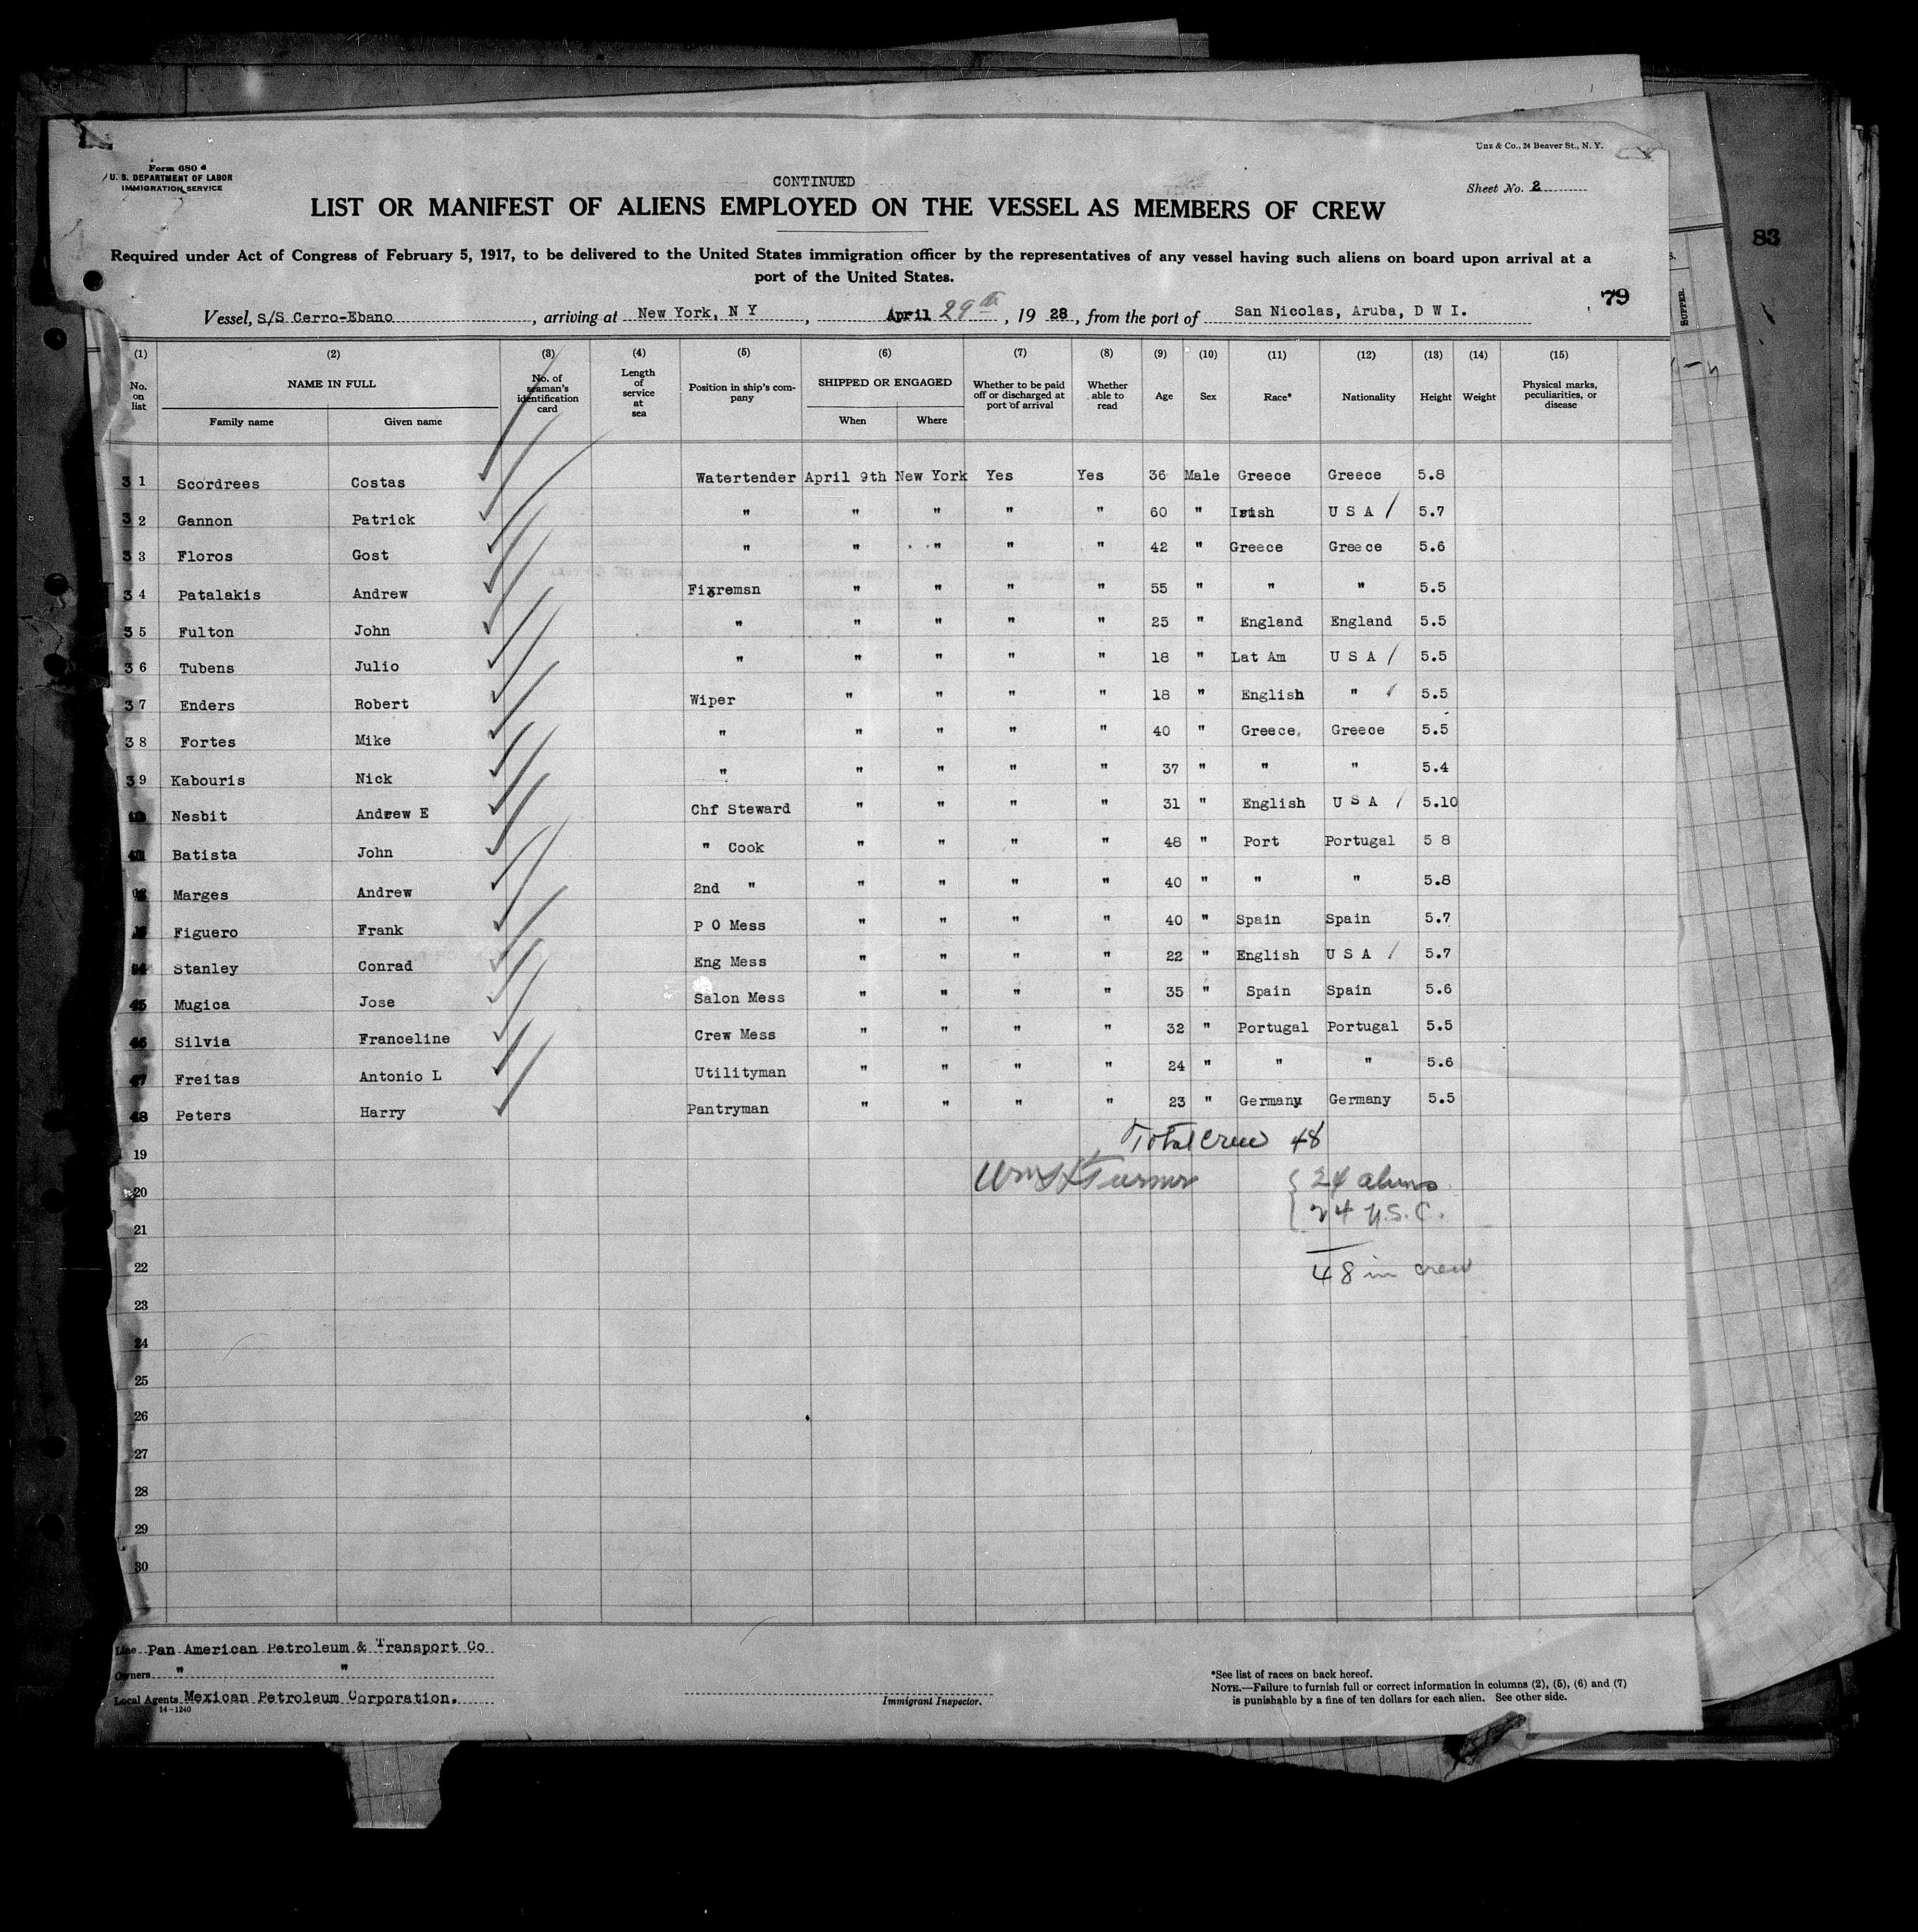 Form 680
U. S. DEPARTMENT OF LABOR
IMMIGRATION SERVICE
Unz & Co., 24 Beaver St., N. Y.
Sheet No. 2
CONTINUED
LIST OR MANIFEST OF ALIENS EMPLOYED ON THE VESSEL AS MEMBERS OF CREW
Required under Act of Congress of February 5, 1917, to be delivered to the United States immigration officer by the representatives of any vessel having such aliens on board upon arrival at a
port of the United States.
83
79
Vessel, S/S Cerro-Ebano, arriving at New York, N Y, April 29th, 1928, from the port of San Nicolas, Aruba, D W I.
SUPPER.
(1) (2) (3) (4) (5) (6) (7) (8) (9) (10) (11) (12) (13) (14) (15)
No. on list NAME IN FULL No. of seaman's identification card Length of service at sea Position in ship's company SHIPPED OR ENGAGED Whether to be paid off or discharged at port of arrival Whether able to read Age Sex Race* Nationality Height Weight Physical marks, peculiarities, or disease
Family name Given name When Where
31 Scordrees Costas Watertender April 9th New York Yes Yes 36 Male Greece Greece 5.8
32 Gannon Patrick " " " " " 60 " Irish U S A / 5.7
33 Floros Gost " " " " " 42 " Greece Greece 5.6
34 Patalakis Andrew Firemsn " " " " 55 " " " 5.5
35 Fulton John " " " " " 25 " England England 5.5
36 Tubens Julio " " " " " 18 " Lat Am U S A / 5.5
37 Enders Robert Wiper " " " " 18 " English " / 5.5
38 Fortes Mike " " " " " 40 " Greece Greece 5.5
39 Kabouris Nick " " " " " 37 " " " 5.4
40 Nesbit Andrew E Chf Steward " " " " 31 " English U S A / 5.10
41 Batista John " Cook " " " " 48 " Port Portugal 5 8
42 Marges Andrew 2nd " " " " " 40 " " " 5.8
Figuero Frank P O Mess " " " " 40 " Spain Spain 5.7
44 Stanley Conrad Eng Mess " " " " 22 " English U S A / 5.7
45 Mugica Jose Salon Mess " " " " 35 " Spain Spain 5.6
46 Silvia Franceline Crew Mess " " " " 32 " Portugal Portugal 5.5
47 Freitas Antonio L Utilityman " " " " 24 " " " 5.6
48 Peters Harry Pantryman " " " " 23 " Germany Germany 5.5
Total Crew 48
19
Turner
24 aliens
20
24 U.S.C.
21
48 in crew
22
23
24
25
26
27
28
29
30
Line Pan American Petroleum & Transport Co
Owners " "
Local Agents Mexican Petroleum Corporation.
14-1240
Immigrant Inspector.
*See list of races on back hereof.
NOTE.—Failure to furnish full or correct information in columns (2), (5), (6) and (7)
is punishable by a fine of ten dollars for each alien. See other side.